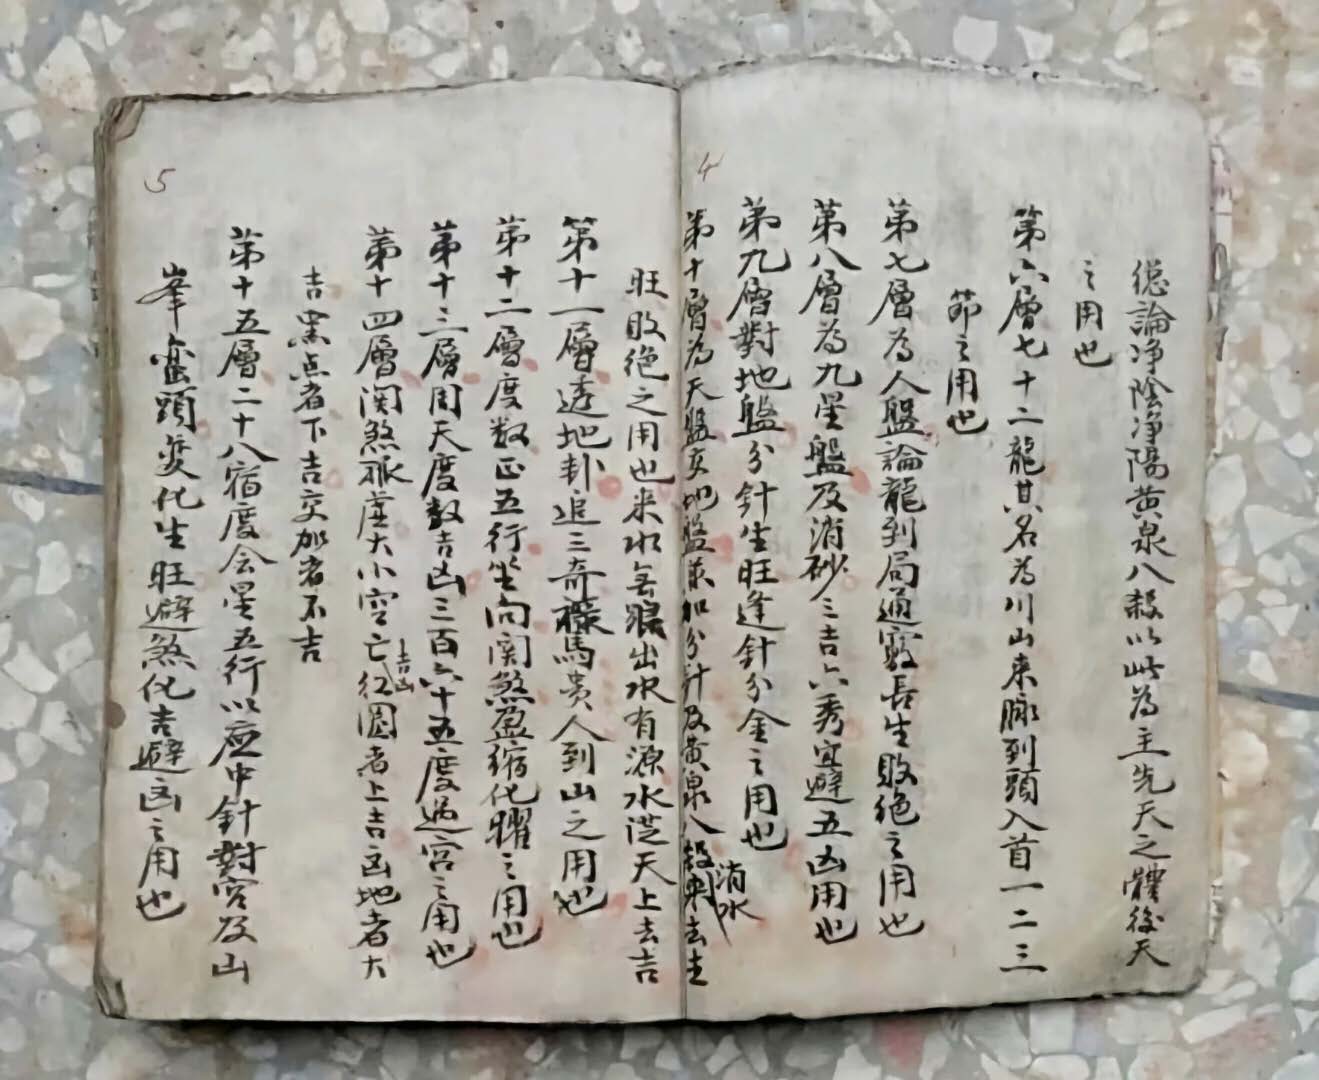 4
總論净陰净陽黄泉八殺以此為主先天之體後天
之用也
第六層七十二龍其名為川山来脉到頭入首一二三
節之用也
第七層為人盤論龍到局通竅長生敗絶之用也
第八層為九星盤及消砂三吉六秀宜避五凶用也
第九層對地盤分針生旺逢針分金之用也
第十層為天盤交地盤兼加分針及黄泉八殺来去生
消水
5
旺敗絶之用也来水出水有源水從天上去吉
第十一層透地卦追三奇祿馬贵人到山之用也
第十二層度数正五行坐向関煞盈縮化曜之用也
第十三層周天度数吉凶三百六十五度過宫之用也
第十四層関煞脈度大小空亡红圈者上吉凶地者大
吉凶
吉黑点者下吉交加者不吉
第十五層二十八宿度会星五行以应中針對宫及山
峯巒頭变化生旺避煞化吉避凶之用也